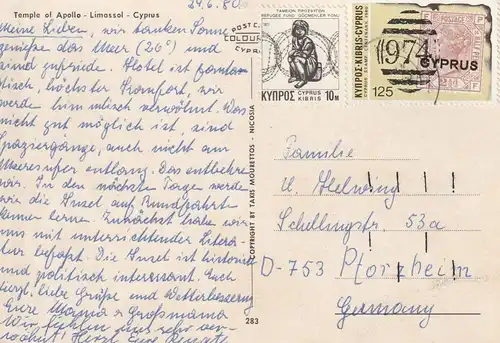 24.6.80
Temple of Apollo - Limassol - Cyprus
Meine Lieben, wir tanken Sonne
genießen das Meer (26°) und
sind zufrieden. Hotel ist fantas-
tisch, höchster Komfort, wir
werden himmlisch verwöhnt. Was
nicht gut möglich ist, sind
Spaziergänge, auch nicht am
Meeresufer entlang. Das entbehren
wir. In den nächsten Tagen werden
wir die Insel auf Rundfahrten
kennen lernen. Zunächst haben wir
uns mit unterrichtender Litera-
tur befaßt. Die Insel ist historisch
und politisch interessant. Euch
herzl. liebe Grüße und Wetterbesserung
Eure Mama & Großmama
Wir fühlen uns sehr ver-
wöhnt! Herzl. Eure
COPYRIGHT BY TAKIS MOURETTOS - NICOSIA
283
POSTC
COLOUR
CYPR
REFUGEE FUND GÖÇMENLER FONU
ΚΥΠΡΟΣ CYPRUS KIBRIS 10M
ΚΥΠΡΟΣ-KIBRIS-CYPRUS
CYPRUS STAMP CENTENARY 1980
125
974
CYPRUS
Familie
U. Hellwing
Schellingstr. 53a
D-753 Pforzheim
Germany